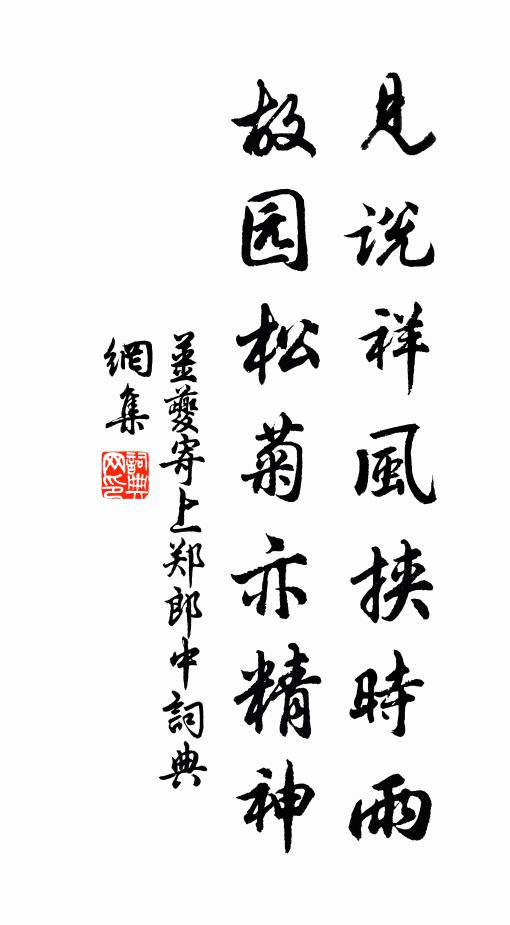 見说祥風挟時雨
故园松菊亦精神
姜夔寄上郑郎中詞典
網集
詞典
网印